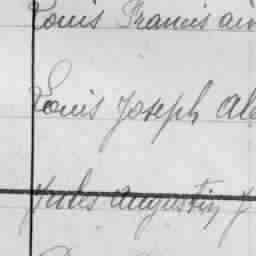 Louis Francis
Louis Joseph Al
Jules Augustin J